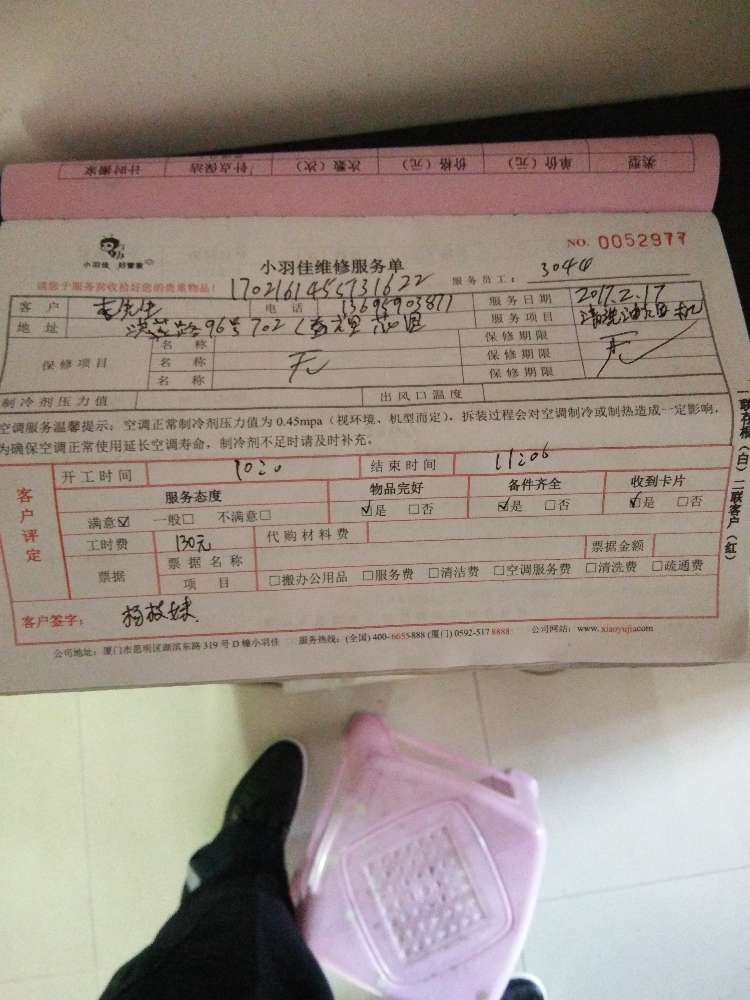 类型 单价（元） 价格（元） 次数（次） 针点保洁 计时搬家
小羽佳 好管家
NO. 0052977
小羽佳维修服务单
请您于服务前收拾好您的贵重物品！
1702161455731622
服务员工： 3044
客户 先生 电话 13695903871 服务日期 2017.2.17
地址 路96号702 服务项目 清洗油烟机
保修项目 名称 无 保修期限 无
名称 保修期限
名称 保修期限
制冷剂压力值 出风口温度
空调服务温馨提示：空调正常制冷剂压力值为 0.45mpa（视环境、机型而定），拆装过程会对空调制冷或制热造成一定影响，
为确保空调正常使用延长空调寿命，制冷剂不足时请及时补充。
客户评定
开工时间 1020 结束时间 11206
服务态度 物品完好 备件齐全 收到卡片
满意☑ 一般□ 不满意□ ☑是 □否 ☑是 □否 ☑是 □否
工时费 130元 代购材料费
票据 票据名称 票据金额
项目 □搬办公用品 □服务费 □清洁费 □空调服务费 □清洗费 □疏通费
客户签字： 杨枝妹
公司地址：厦门市思明区湖滨东路 319 号 D 幢小羽佳 服务热线：(全国) 400-6655888 (厦门) 0592-5178888 公司网站：www.xiaoyujia.com
一联存根（白）二联客户（红）